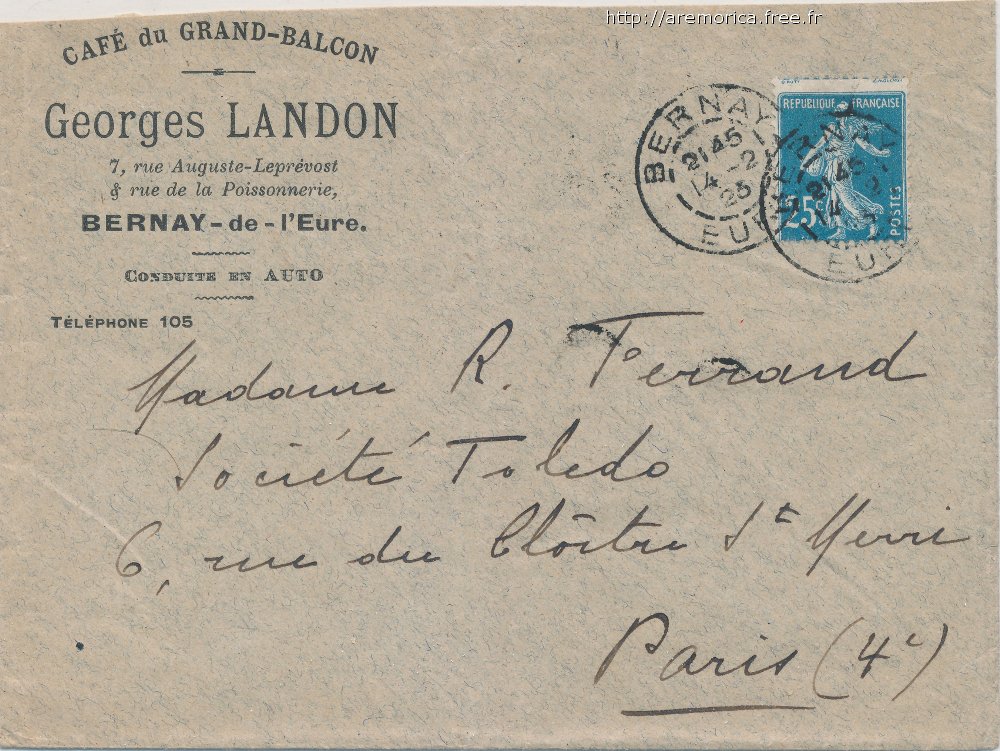 http://aremorica.free.fr
CAFÉ du GRAND-BALCON
Georges LANDON
7, rue Auguste-Leprévost
& rue de la Poissonnerie,
BERNAY-de-l'Eure.
CONDUITE EN AUTO
TÉLÉPHONE 105
BERNAY
21 45
14 - 2
25
EURE
REPUBLIQUE FRANÇAISE
25c
POSTES
21 45
14
EURE
Madame R. Ferrand
Société Toledo
6, rue du Cloître St Merri
Paris (4e)